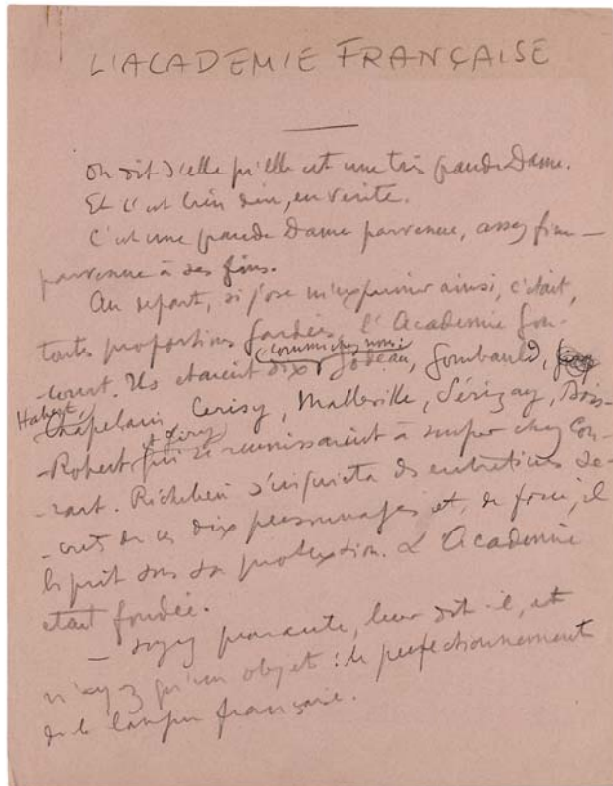 L'ACADEMIE FRANÇAISE
On dit d'elle qu'elle est une très grande Dame.
Et c'est bien vrai, en vérité.
C'est une grande Dame parvenue, assez fine —
parvenue à ses fins.
Au départ, si j'ose m'exprimer ainsi, c'était,
toutes proportions gardées, l'Academie Gon-
-court. Ils étaient dix (comme chez nous): Godeau, Gombauld,
Habert, Chapelain, Cerisy, Malleville, Sérizay, Bois-
-Robert et Giry qui se réunissaient à souper chez Con-
-rart. Richelieu s'inquiéta des entretiens se-
-crets de ces dix personnages et, de force, il
les prit sous sa protection. L'Académie
était fondée.
— Soyez quarante, leur dit-il, et
n'ayez qu'un objet : le perfectionnement
de la langue française.